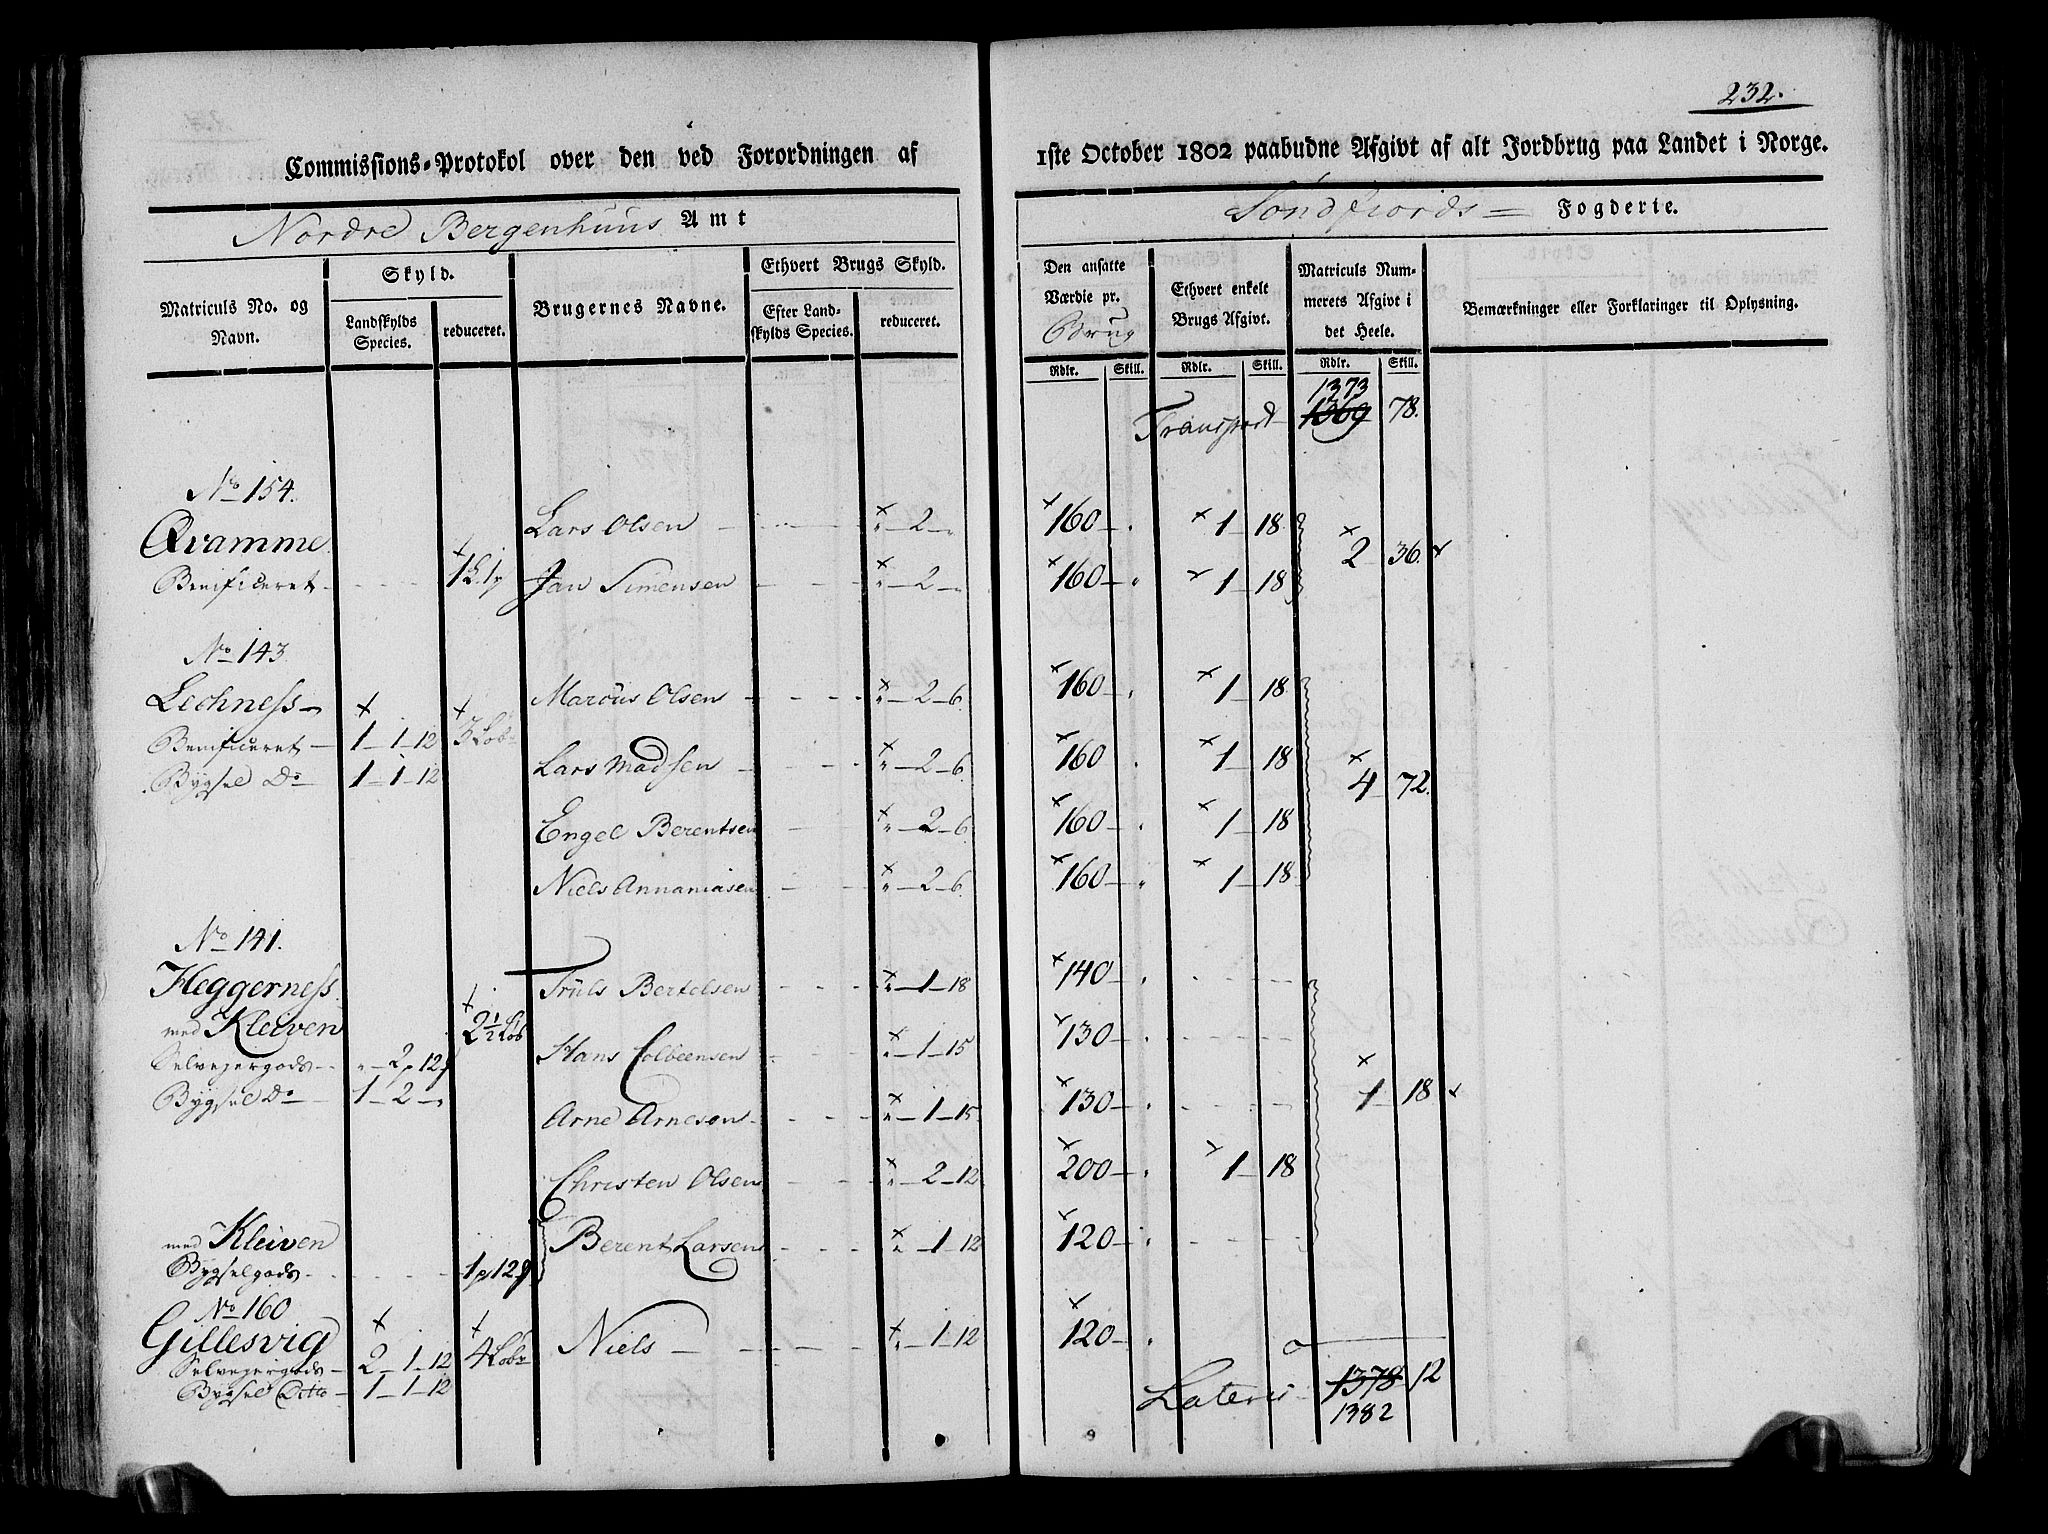 232.
Commissions-Protokol over den ved Forordningen af 1ste October 1802 paabudne Afgivt af alt Jordbrug paa Landet i Norge.
Nordre Bergenhuus Amt Söndfiords Fogderie.
Matriculs No. og Navn. Skyld. Landskylds Species. reduceret. Brugernes Navne. Ethvert Brugs Skyld. Efter Landskylds Species. reduceret. Den ansatte Værdie pr. Brug Ethvert enkelt Brugs Afgivt. Matriculs Nummerets Afgivt i det Heele. Bemærkninger eller Forklaringer til Oplysning.
Rdlr. Skill. Rdlr. Skill. Rdlr. Skill.
1373
Transport 1369 78.
No 154.
Qvamme Lars Olsen " 2 " 160 1 18 2 36.
Beneficeret Jan Simensen " 2 " 160 1 18
No 143.
Lechness Marcus Olsen " 2 6. 160 1 18
Beneficeret 1 1 12 3 Løb
Lars Madsen " 2 6. 160 1 18 4 72.
Bygsel Do 1 1 12
Engel Berentsen " 2 6. 160 1 18
Niels Annaniasen " 2 6. 160 1 18
No 141.
Heggerness Truls Bertelsen " 1 18 140
med Kleiven 2 1/2 Løb
Hans Colbeensen " 1 15 130
Selvejergods " 2 p 12
Bygsel Do 1 2 "
Arne Arneson " 1 15. 130 1 18
Christen Olsen " 2 12 200 1 18
med Kleiven Berent Larsen " 1 12 120
Bygselgods 1 p 12
No 160
Gillesvig Niels " 1 12 120
Selvejergods 2 1 12 4 Løb
Bygsel Ditto 1 1 12
Lateris 1378 12
1382